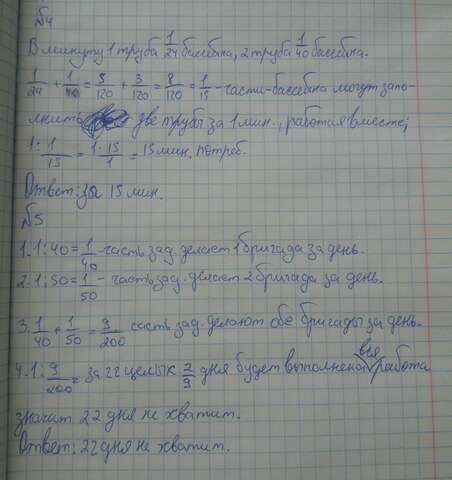 №4
В минуту 1 труба 1/24 бассейна, 2 труба 1/40 бассейна.
1/24 + 1/40 = 5/120 + 3/120 = 8/120 = 1/15 - части бассейна могут запо-
лнить две трубы за 1 мин., работая вместе;
1 : 1/15 = 1·15/1 = 15 мин. потреб.
Ответ: за 15 мин.
№5
1. 1:40 = 1/40 - часть зад. делает 1 бригада за день.
2. 1:50 = 1/50 - часть зад. делает 2 бригада за день.
3. 1/40 + 1/50 = 9/200 часть зад. делают обе бригады за день.
4. 1 : 9/200 = за 22 целых 2/9 дня будет выполнена вся работа
значит 22 дня не хватит.
Ответ: 22 дня не хватит.